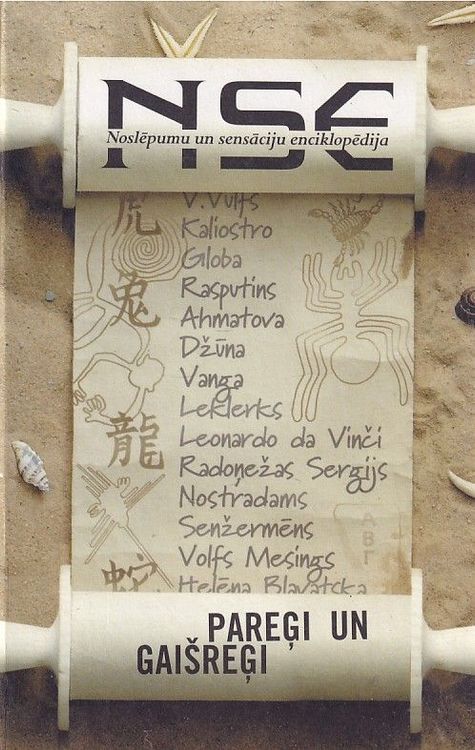 NSE
Noslēpumu un sensāciju enciklopēdija
V.Vulfs
虎
Kaliostro
Globa
Rasputins
兔
Ahmatova
Džūna
Vanga
Leklerks
Leonardo da Vinči
龍
Radoņežas Sergijs
Nostradams
Senžermēns
АВГ
Volfs Mesings
蛇
Helēna Blavatska
PAREĢI UN
GAIŠREĢI